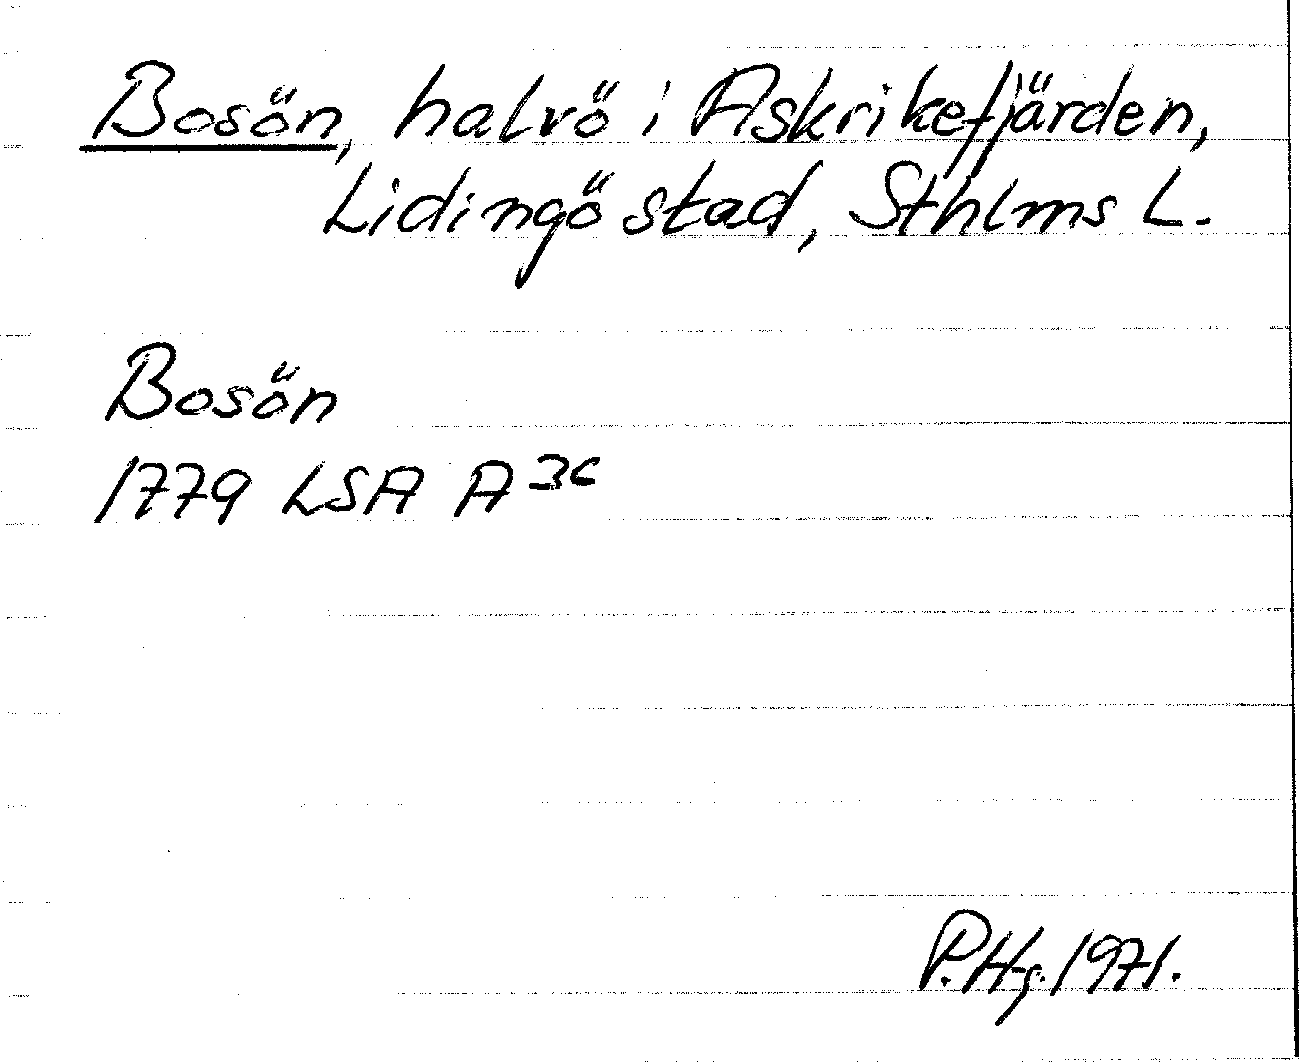 Bosön, halvö i Askrikefjärden,
Lidingö stad, Sthlms L.
Bosön
1779 LSA A 36
P.Hg. 1971.